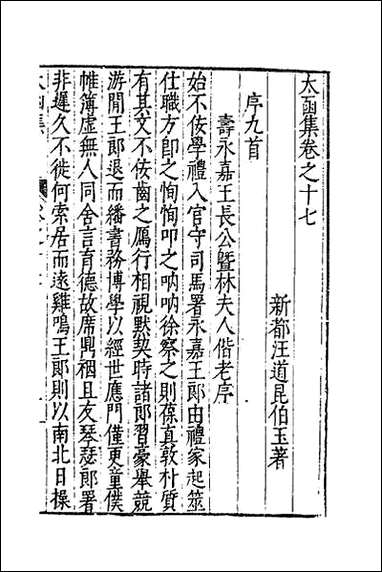 太函集卷之十七
新都汪道昆伯玉著
序九首
壽永嘉王長公暨林夫人偕老序
始不佞學禮入官守司馬署永嘉王郎由禮家起筮
仕職方卽之恂恂叩之吶吶徐察之則葆真敦朴質
有其文不佞齒之厲行相視默契時諸郎習豪舉競
游閒王郎退而繙書務博學以經世應門僅更童僕
帷簿虛無人同舍言育德故席鼎裀且友琴瑟郎署
非遲久不徙何索居而遠雞鳴王郎則以南北日操
太函集